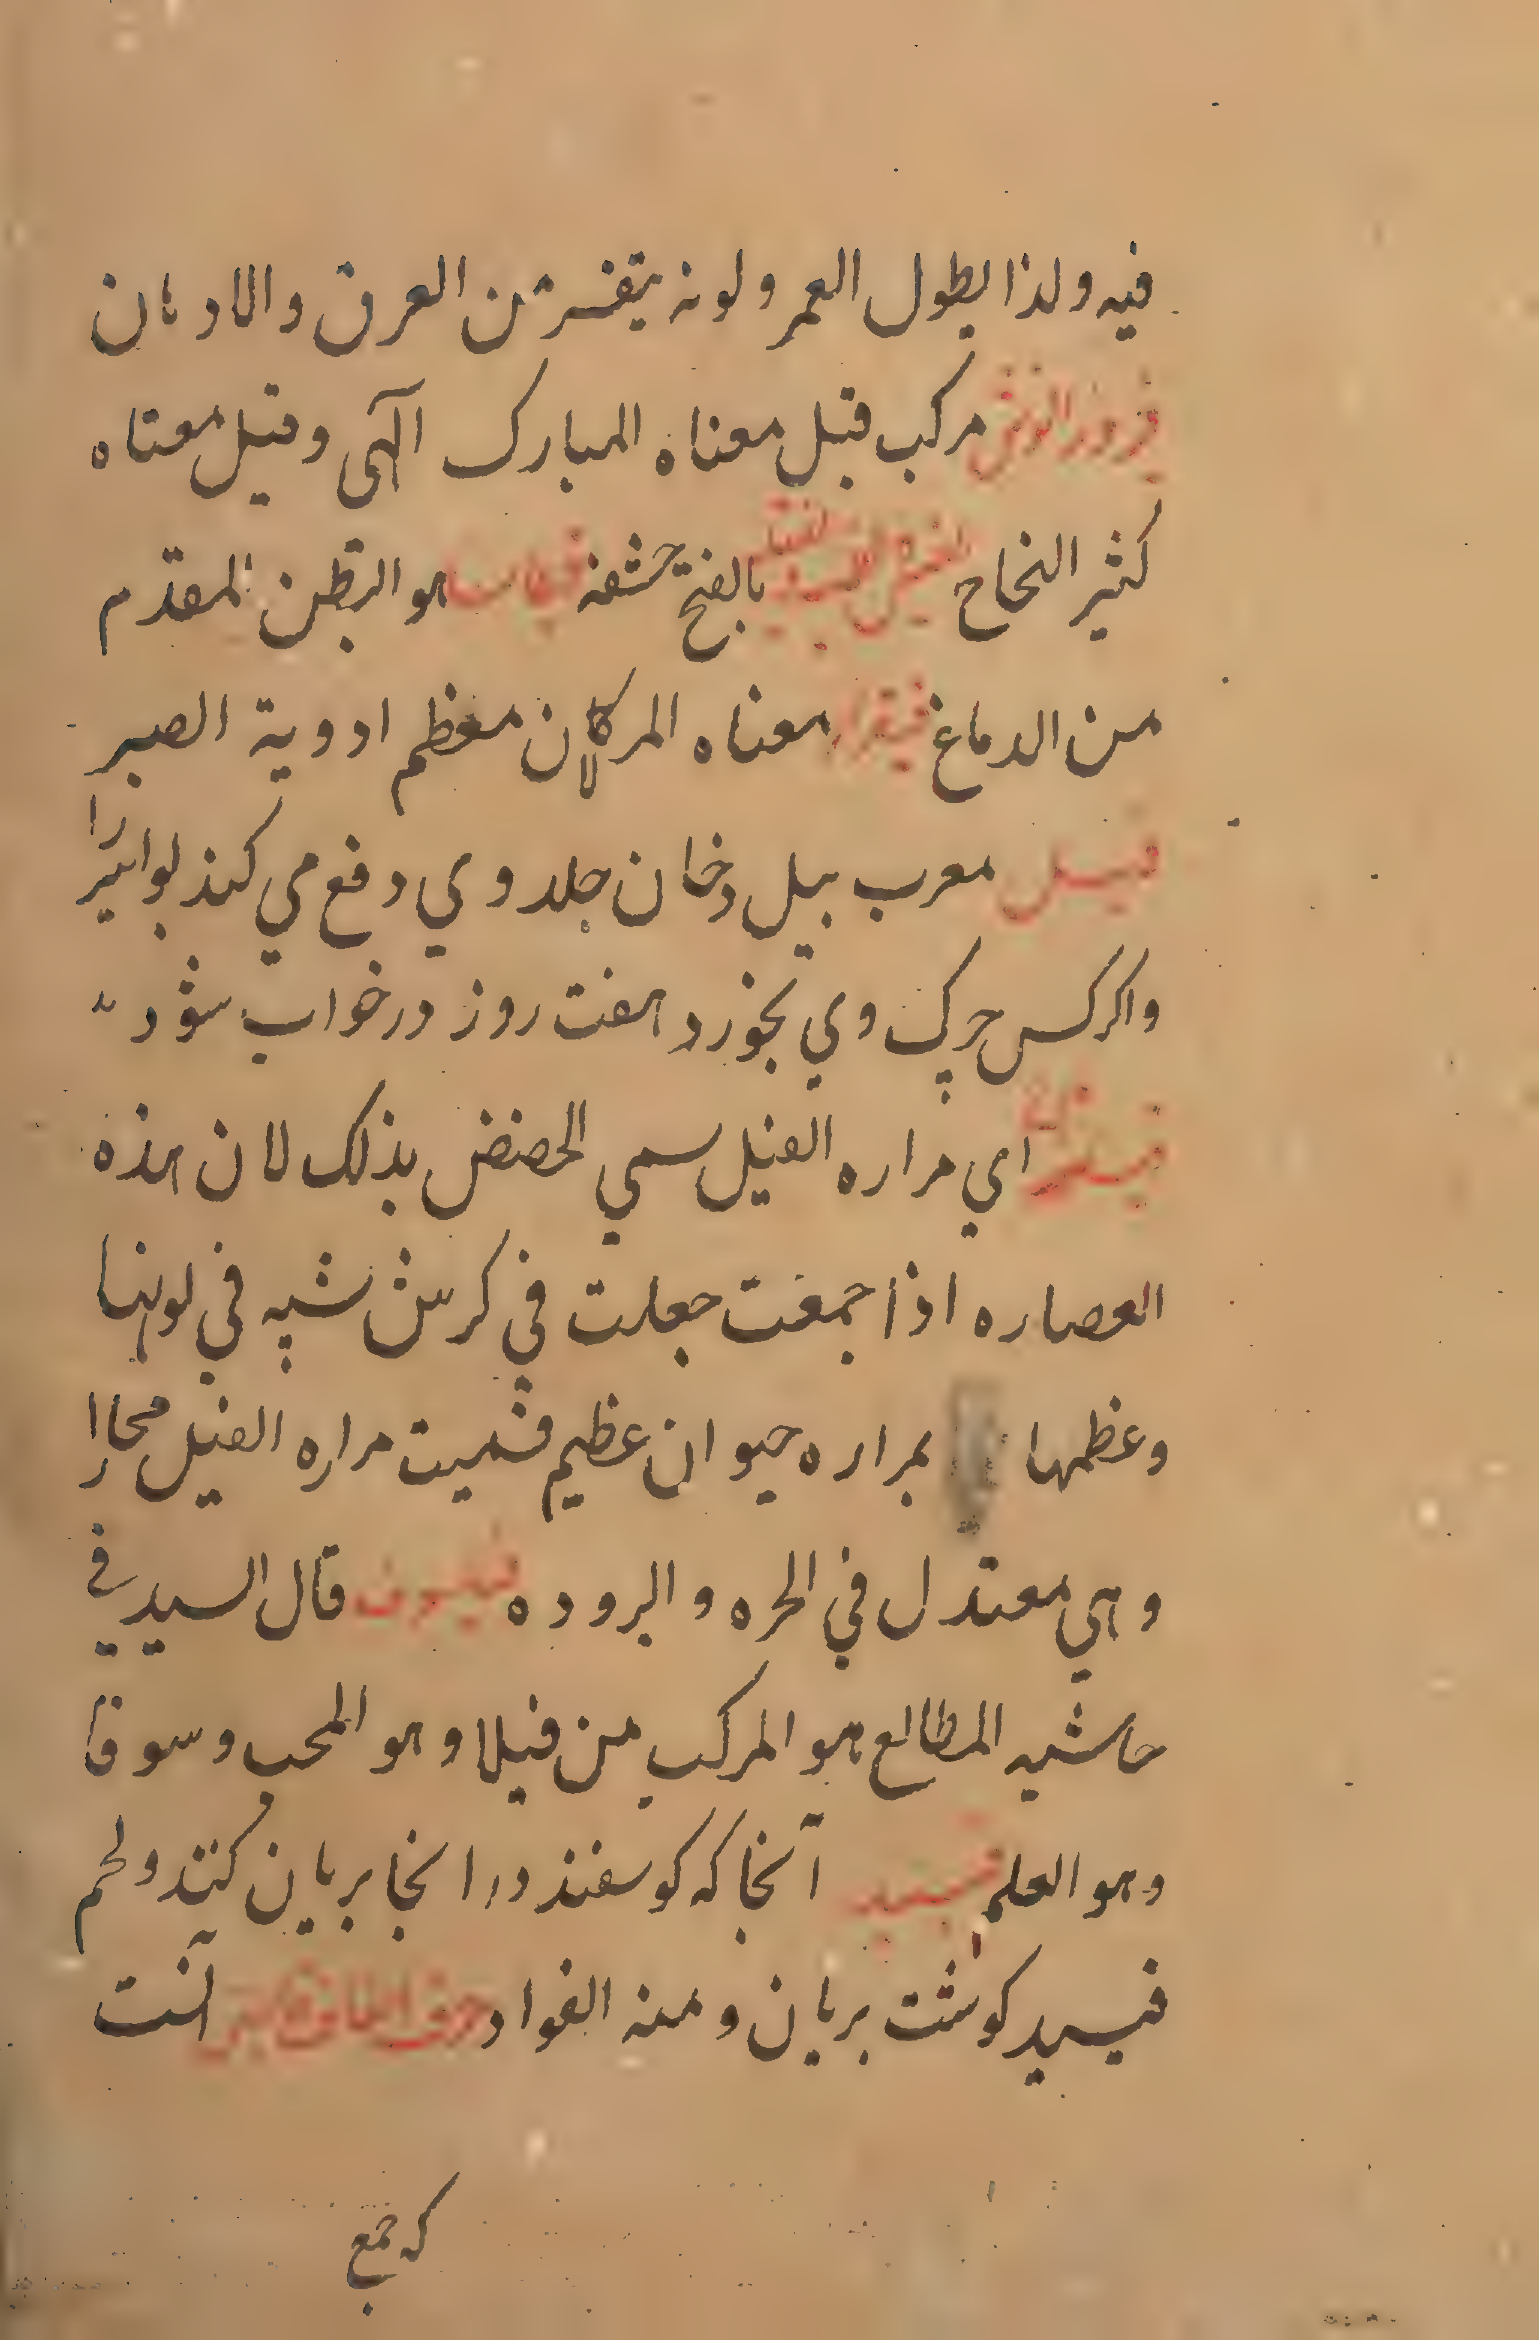 فيه ولذا يطول العمر ولونه يتغير من العرق والادهان
مركب قيل معناه المبارك الهى وقيل معناه
كثير النجاح بالفتح حشفه هو البطن المقدم
من الدماغ فيقرا معناه المر لان معظم ادوية الصبر
فيل معرب پيل دخان جلد وي دفع مي كند بواسير را
واكر كس چرك وي بخورد هفت روز درخواب شود
اي مراره الفيل سمي الحضض بذلك لان هذه
العصاره اذا جمعت جعلت في كرش شبيه في لونها
وعظمها بمراره حيوان عظيم فسميت مراره الفيل مجازا
وهي معتدل في الحره والبروده فيلسوف قال السيد في
حاشيه المطالع هو المركب من فيلا وهو المحب وسوفا
وهو العلم آنجا كه كوسفند در انجا بريان كنند ولحم
فيسيد كوشت بريان ومنه الفواد حرف القاف آنست
كه جمع